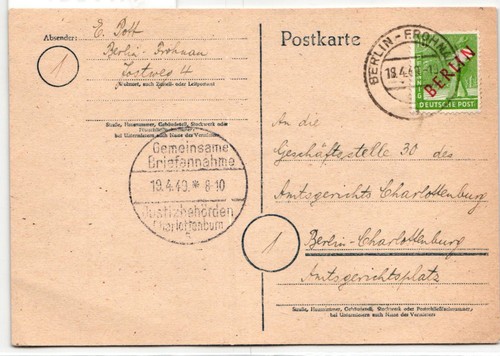 Absender: E. Pott
Berlin-Frohnau
Wohnort, auch Zustell- oder Leitpostamt
Straße, Hausnummer, Gebäudeteil, Stockwerk oder
bei Untermietern auch Name des Vermieters
Gemeinsame
Briefannahme
19.4.49.* 8-10
Justizbehörden
Charlottenburg
Postkarte
BERLIN-FROHNAU
19.4.49
BERLIN
DEUTSCHE POST
An die
Geschäftsstelle 30 des
Amtsgerichts Charlottenburg
1
1
Berlin-Charlottenburg
Amtsgerichtsplatz
Straße, Hausnummer, Gebäudeteil, Stockwerk oder Postschließfachnummer,
bei Untermietern auch Name des Vermieters